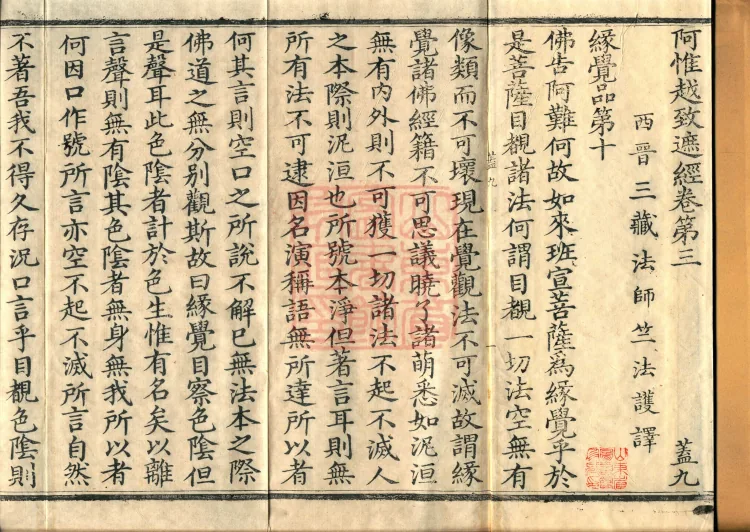 阿惟越致遮經卷第三 蓋九
西晉三藏法師竺法護譯
緣覺品第十
佛告阿難何故如來班宣菩薩為緣覺乎於
是菩薩目覩諸法何謂目覩一切法空無有
蓋九
像類而不可壞現在覺觀法不可滅故謂緣
覺諸佛經籍不可思議曉了諸萌悉如泥洹
無有內外則不可獲一切諸法不起不滅人
之本際則泥洹也所號本淨但著言耳則無
所有法不可逮因名演稱語無所達所以者
何其言則空口之所說不解已無法本之際
佛道之無分別觀斯故曰緣覺目察色陰但
是聲耳此色陰者計於色生惟有名矣以離
言聲則無有陰其色陰者無身無我所以者
何因口作號所言亦空不起不滅所言自然
不著吾我不得久存況口言乎目覩色陰則